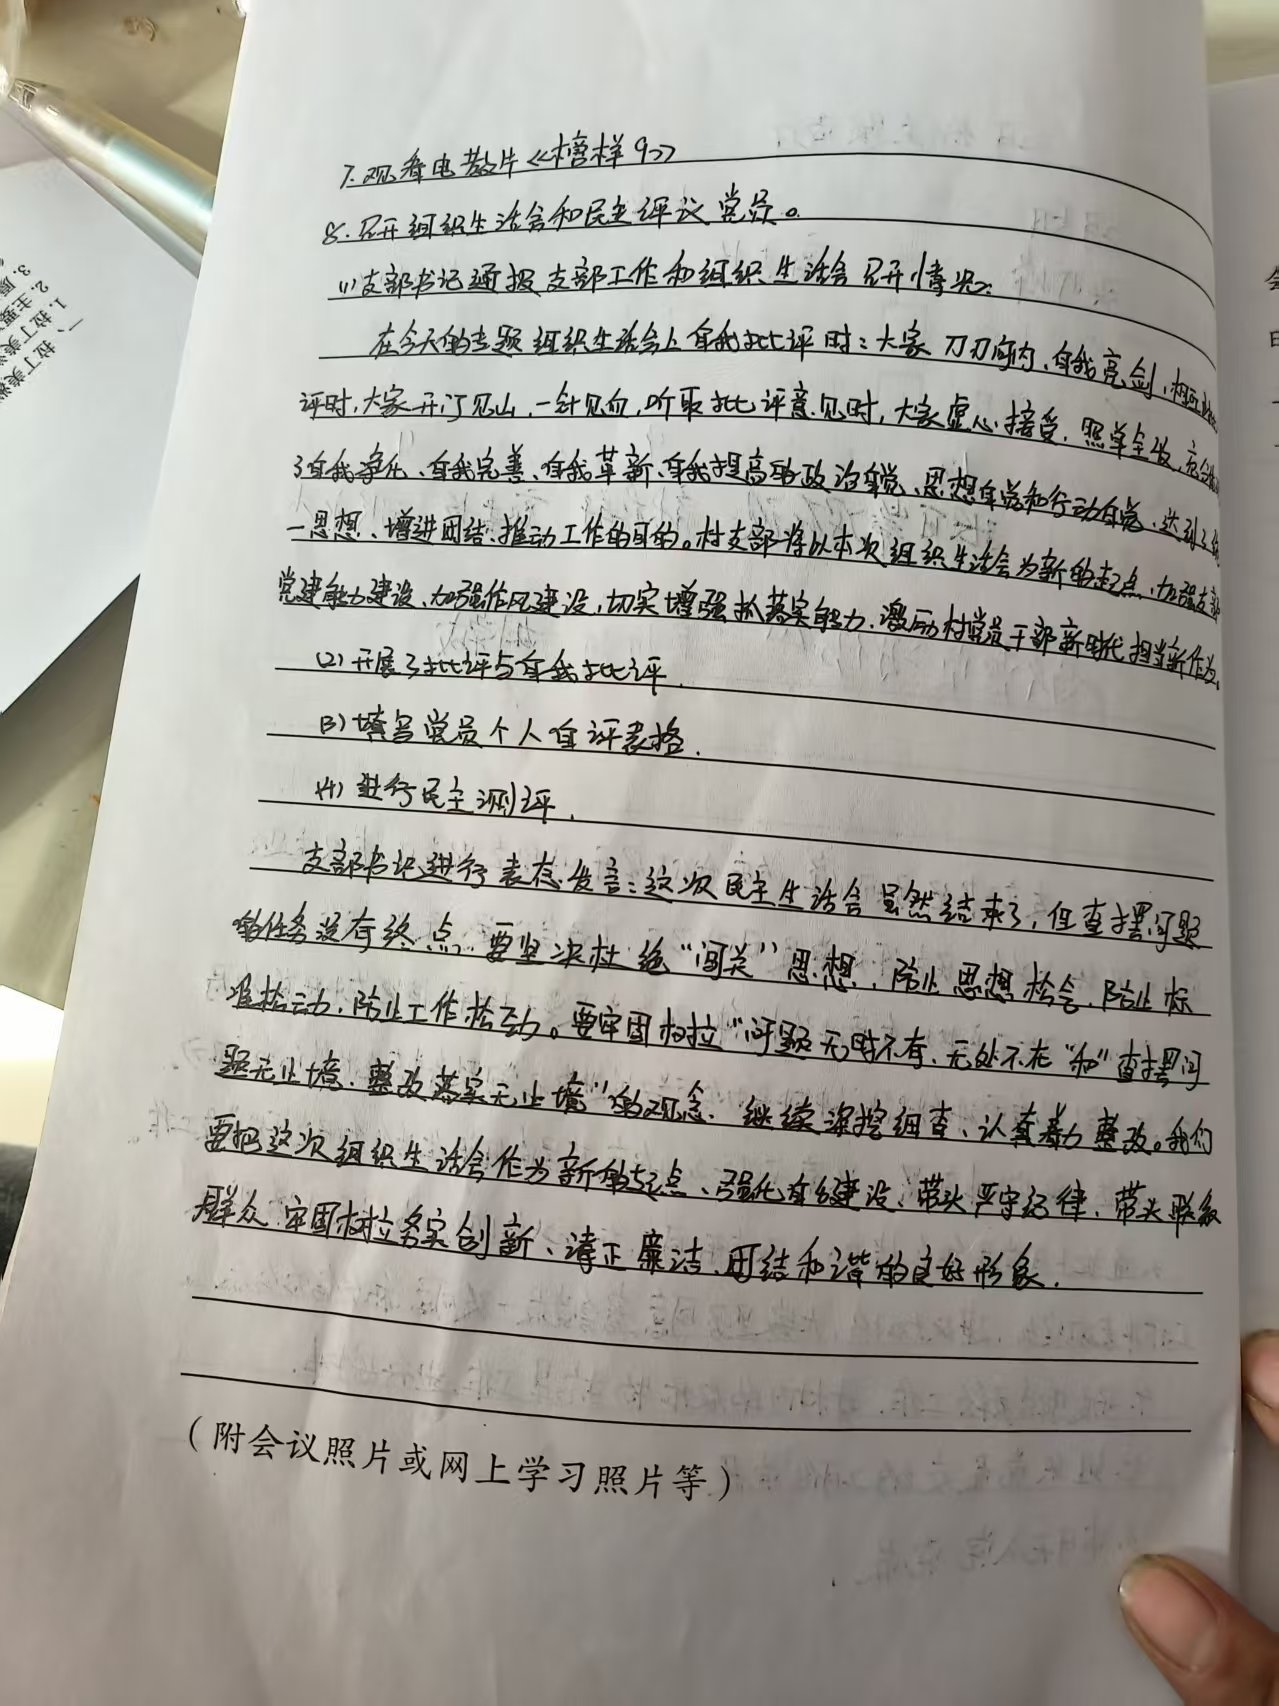 7.观看电教片《榜样9》
8.召开组织生活会和民主评议党员。
(1)支部书记通报支部工作和组织生活会召开情况。
在今天的专题组织生活会上自我批评时：大家刀刃向内、自我亮剑，相互批
评时，大家开门见山，一针见血，听取批评意见时，大家虚心接受，照单全收，
了自我净化、自我完善、自我革新、自我提高的政治自觉、思想自觉和行动自觉，达到了统
一思想、增进团结、推动工作的目的。村支部将以本次组织生活会为新的起点，加强支部
党建能力建设、加强作风建设，切实增强抓落实能力，激励村党员干部新时代担当新作为。
(2)开展了批评与自我批评.
(3)填写党员个人自评表格.
(4)进行民主测评.
支部书记进行表态发言：这次民主生活会虽然结束了，但查摆问题
的任务没有终点，要坚决杜绝“闯关”思想，防止思想松气，防止标
准松动，防止工作松劲。要牢固树立“问题无时不有、无处不在”和“查摆问
题无止境、整改落实无止境”的观念，继续深挖细查、认真着力整改。我们
要把这次组织生活会作为新的起点、强化自身建设、带头严守纪律、带头联系
群众，牢固树立务实创新、清正廉洁、团结和谐的良好形象.
（附会议照片或网上学习照片等）
一、拉丁美
1.拉丁美
2.主要
3.